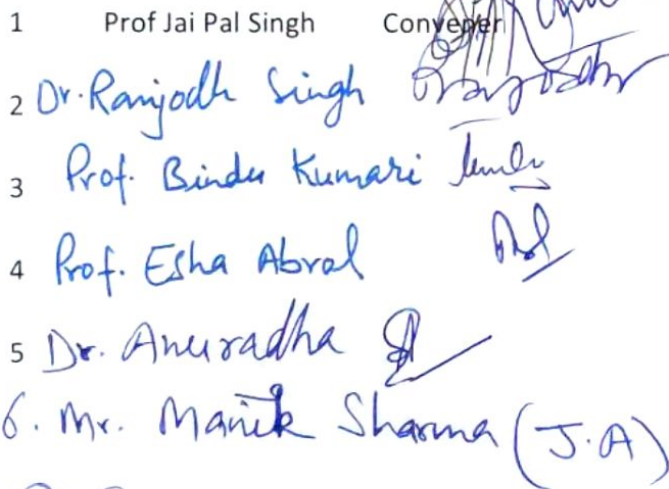 1 Prof Jai Pal Singh Convener
2 Dr. Ranjodh Singh
3 Prof. Bindu Kumari
4 Prof. Esha Abrol
5 Dr. Anuradha
6. Mr. Manik Sharma (J.A)